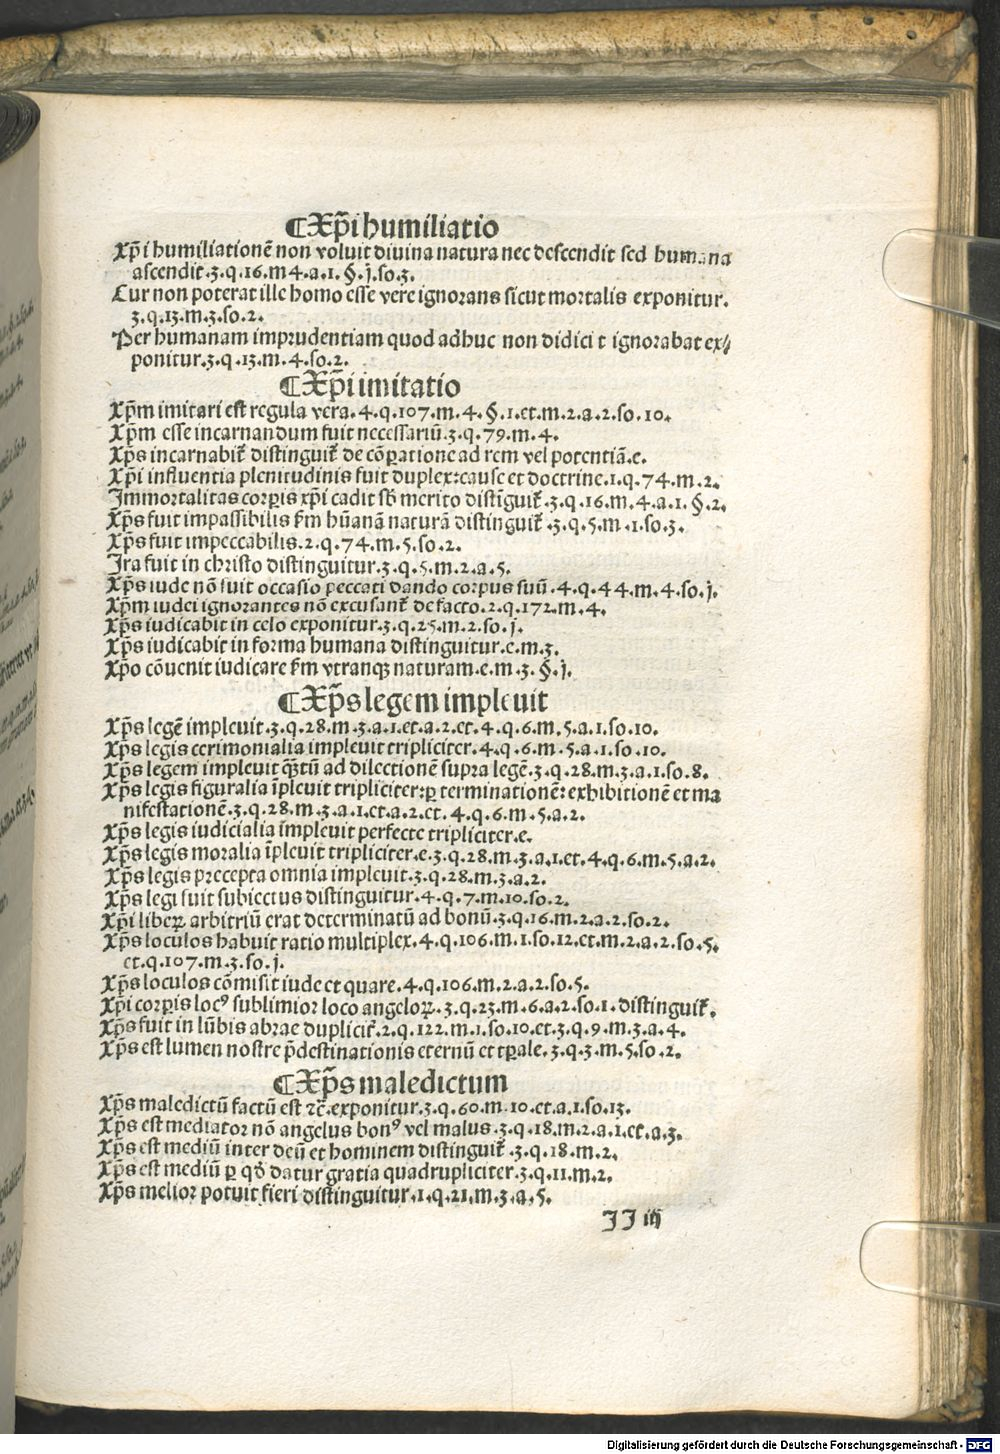 ¶Xp̄i humiliatio
Xp̄i humiliationē non voluit diuina natura nec descendit sed humana
ascendit.3.q.16.m 4.a.1.§.j.so.3.
Cur non poterat ille homo esse vere ignorans sicut mortalis exponitur.
3.q.13.m.3.so.2.
Per humanam imprudentiam quod adhuc non didicit ignorabat ex⸗
ponitur.3.q.13.m.4.so.2.
¶Xp̄i imitatio
Xp̄m imitari est regula vera.4.q.107.m.4.§.1.et.m.2.a.2.so.10.
Xp̄m esse incarnandum fuit necessariū.3.q.79.m.4.
Xp̄s incarnabit̄ distinguit̄ de cōꝑatione ad rem vel potentiā.e.
Xp̄i influentia plenitudinis fuit duplex:cause et doctrine.1.q.74.m.2.
Immortalitas corꝑis xp̄i cadit sb̄ merito distīguit̄.3.q.16.m.4.a.1.§.2.
Xp̄s fuit impassibilis ẜm hūanā naturā distinguit̄.3.q.5.m.1.so.3.
Xp̄s fuit impeccabilis.2.q.74.m.5.so.2.
Ira fuit in christo distinguitur.3.q.5.m.2.a.5.
Xp̄s iude nō fuit occasio peccati dando corpus suū.4.q.44.m.4.so.j.
Xp̄m iudei ignorantes nō excusant̄ de facto.2.q.172.m.4.
Xp̄s iudicabit in celo exponitur.3.q.25.m.2.so.j.
Xp̄s iudicabit in forma humana distinguitur.e.m.3.
Xp̄o cōuenit iudicare ẜm vtranqꝫ naturam.e.m.3.§.j.
¶Xp̄s legem impleuit
Xp̄s legē impleuit.3.q.28.m.3.a.1.et.a.2.et.4.q.6.m.5.a.1.so.10.
Xp̄s legis cerimonialia impleuit tripliciter.4.q.6.m.5.a.1.so.10.
Xp̄s legem impleuit qꝫtū ad dilectionē supra legē.3.q.28.m.3.a.1.so.8.
Xp̄s legis figuralia īpleuit tripliciter:ꝑ terminationē:exhibitionē et ma
nifestationē.3.q.28.m.3.a.1.et.a.2.et.4.q.6.m.5.a.2.
Xp̄s legis iudicialia impleuit perfecte tripliciter.e.
Xp̄s legis moralia īpleuit tripliciter.e.3.q.28.m.3.a.1.et.4.q.6.m.5.a.2.
Xp̄s legis precepta omnia impleuit.3.q.28.m.3.a.2.
Xp̄s legi fuit subiectus distinguitur.4.q.7.m.10.so.2.
Xp̄i libeꝝ arbitriū erat determinatū ad bonū.3.q.16.m.2.a.2.so.2.
Xp̄s loculos habuit ratio multiplex.4.q.106.m.1.so.12.et.m.2.a.2.so.5.
et.q.107.m.3.so.j.
Xp̄s loculos cōmisit iude et quare.4.q.106.m.2.a.2.so.5.
Xp̄i corꝑis locꝰ sublimior loco angeloꝝ.3.q.23.m.6.a.2.so.1.distinguit̄.
Xp̄s fuit in lūbis abrae duplicit̄.2.q.122.m.1.so.10.et.3.q.9.m.3.a.4.
Xp̄s est lumen nostre p̄destinationis eternū et tꝑale.3.q.3.m.5.so.2.
¶Xp̄s maledictum
Xp̄s maledictū factū est ⁊c̄.exponitur.3.q.60.m.10.et.a.1.so.13.
Xp̄s est mediator nō angelus bonꝰ vel malus.3.q.18.m.2.a.1.et.a.3.
Xp̄s est mediū inter deū et hominem distinguit̄.3.q.18.m.2.
Xp̄s est mediū ꝑ qd̄ datur gratia quadrupliciter.3.q.11.m.2.
Xp̄s melior potuit fieri distinguitur.1.q.21.m.3.a.5.
JJ iiij
Digitalisierung gefördert durch die Deutsche Forschungsgemeinschaft - DFG